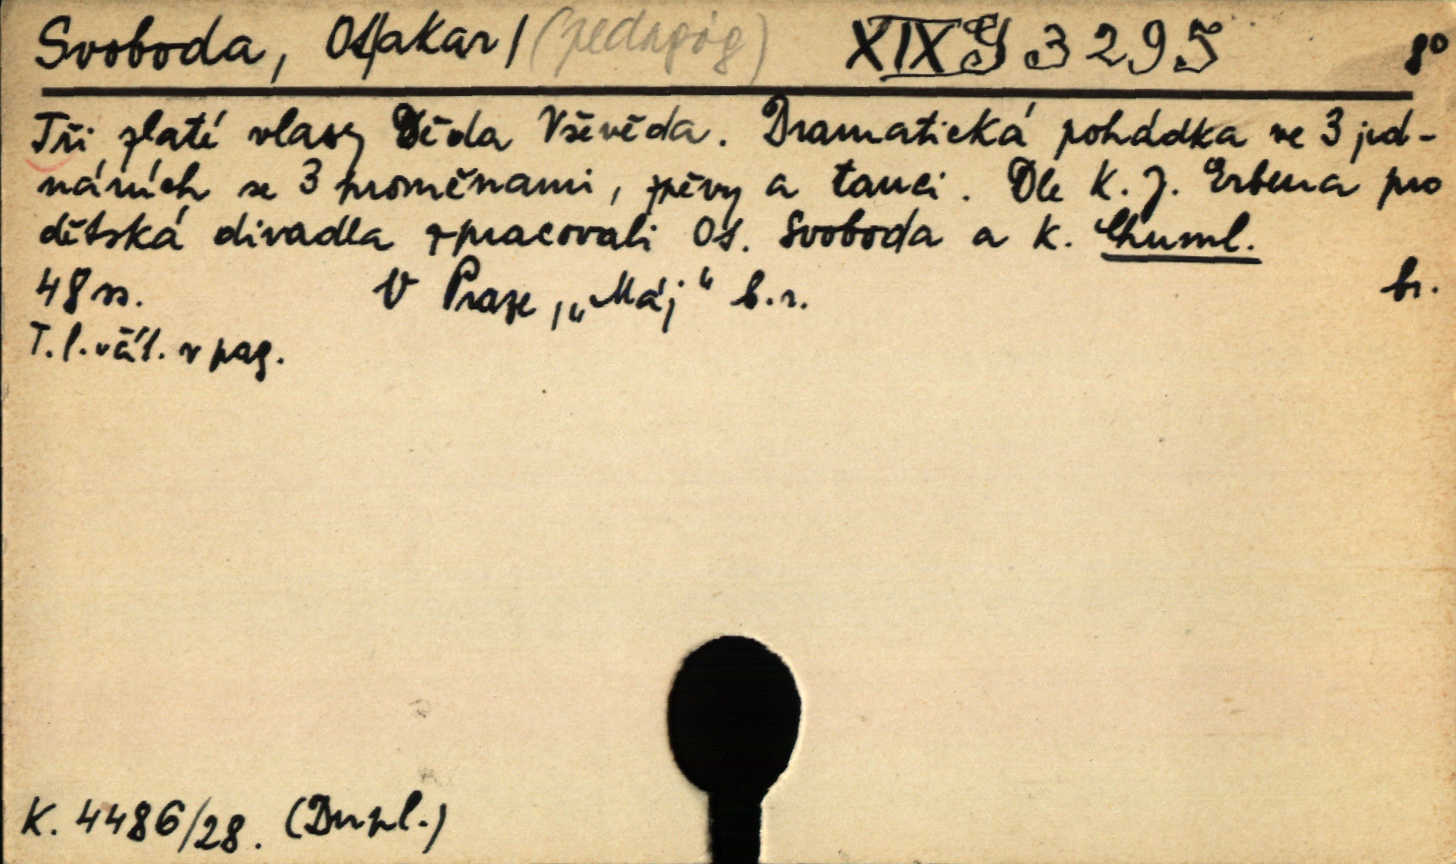 Svoboda, Ot/akar/ (pedagóg) XIX G 3295 8°
Tři zlaté vlasy Děda Vševěda. Dramatická pohádka ve 3 jed-
náních se 3 proměnami, zpěvy a tanci. Dle K. J. Erbena pro
dětská divadla zpracovali Ot. Svoboda a K. Chuml.
48 ss. V Praze, „Máj“ b.r. br.
T. l. včít. v pag.
K. 4486/28. (Dupl.)